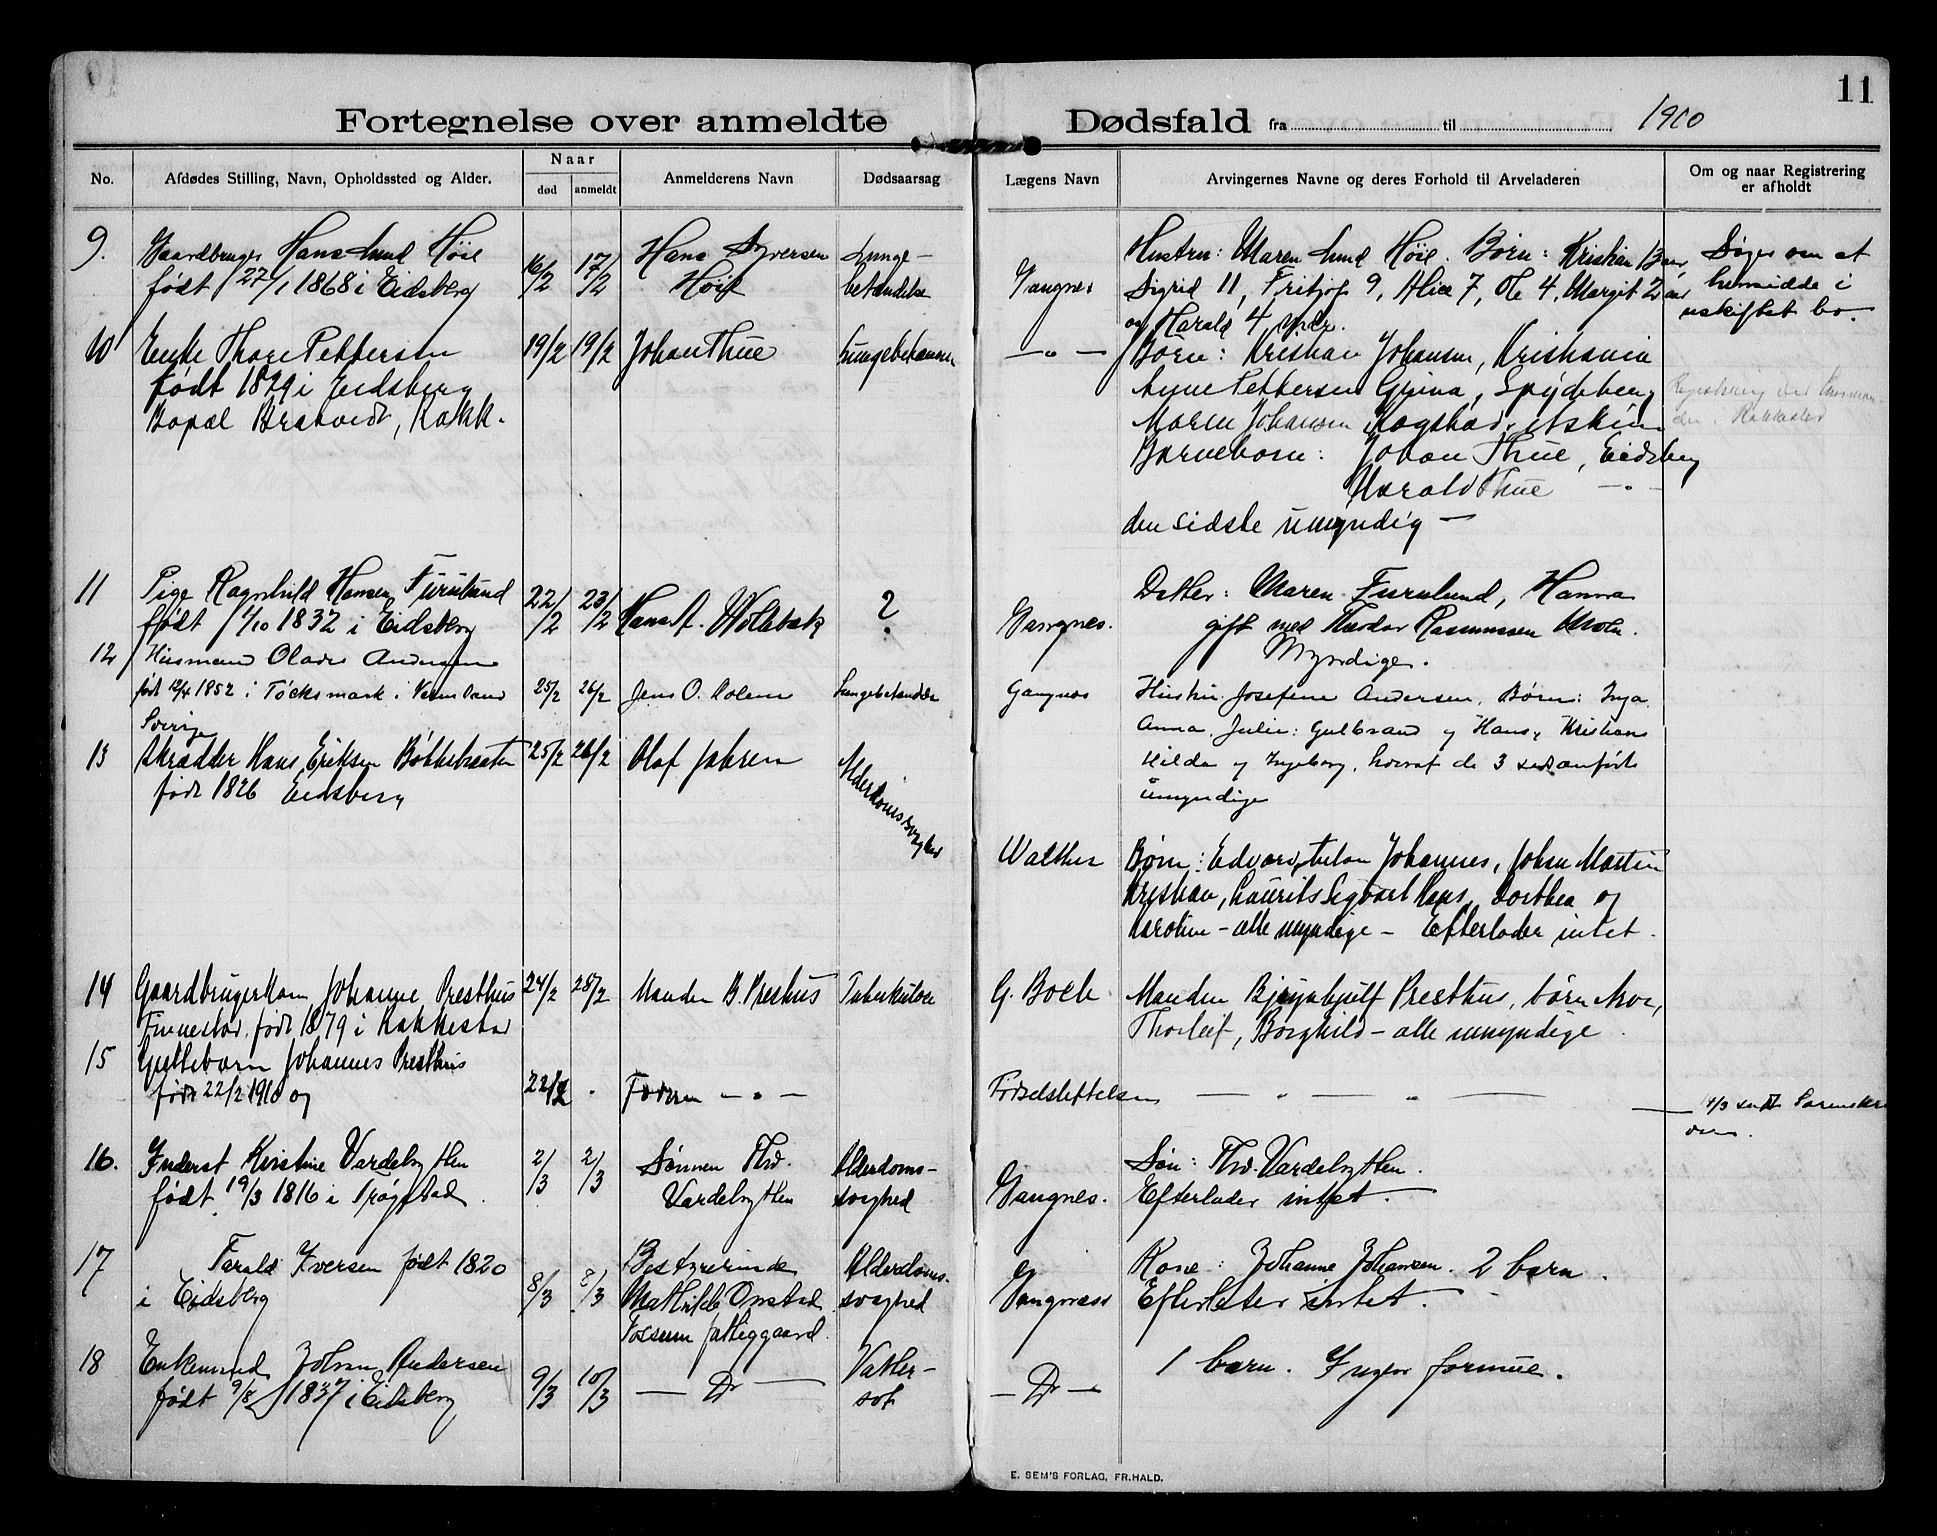 11
Fortegnelse over anmeldte Dødsfald fra til 1910
No. Afdødes Stilling, Navn, Opholdssted og Alder. Naar død anmeldt Anmelderens Navn Dødsaarsag Lægens Navn Arvingernes Navne og deres Forhold til Arveladeren Om og naar Registrering er afholdt
9. Gaardbruger Hans Lund Höie
født 27/1 1868 i Eidsberg
16/2 17/2
Hans Syversen
Höie
Lunge-
betændelse
Vangnes
Hustru: Maren Lund Höie. Børn: Kristian 13 aar,
Sigrid 11, Fritjof 9, Alice 7, Ole 4, Margit 2 aar
og Harald 4 mdr.
Søges om at
hensidde i
uskiftet bo.
10 Enke Thore Pettersen
født 1829 i Eidsberg
Bopæl Bratvedt, Rakk.
19/2 19/2
Johan Thue
— " —
Børn: Kristian Johansen, Kristiania
Pettersen Spydeberg
Maren Johansen Askim
Barnebørn: Johan Thue, Eidsberg
Harald Thue — " —
den sidste umyndig —
11 Pige Ragnhild Hansen Furulund
født 1/10 1832 i Eidsberg
22/2 23/2
Hans A.
?
Vangnes.
Døtler: Maren Furulund, Hanna
gift med Theodor Rasmussen
Myndige.
12 Husmand Olaves Andersen
født 12/4 1852 i Töcksmark i Vermland
Sverige
25/2 26/2
Jens O.
Gangnes
Hustru Josefine Andersen. Børn: Inga
Anna, Julie: Gulbrand og Hans, Kristian
Hilda og Ingeborg, hvoraf de 3 sidstanførte
umyndige
13 Skrædder Hans Eriksen
født 1826 Eidsberg
25/2 26/2
Olaf Jahren
Alderdomssvaghed
Walther
Børn: Edvard, Anton Johannes, Johan Martin
Kristian, Laurits Sigvart Hans, Dorthea og
Karoline – alle myndige – Efterlader intet.
14 Gaardbrugerkone Johanne Presthus
Finnestad født 1879 i Rakkestad
24/2 28/2
Manden B. Presthus
Tuberkulose
G. Boeck
Manden Brynhjulf Presthus, børn
Thorleif, Borghild – alle umyndige.
15 Guttebarn Johannes Presthus
født 22/2 1910 og
22/2
Faderen — " —
Fødselsstiftelsen
— " — " —
16. Inderst Kristine Vardebytten
født 19/3 1816 i Trøgstad.
2/3 2/3
Sønnen Thv.
Vardebytten
Alderdoms-
svaghed
Vangnes.
Søn: Thv. Vardebytten.
Efterlader intet.
17 Tarald Iversen født 1820
i Eidsberg
8/3 8/3
Bestyrerinde
Mathilde Onstad
Fossum fattiggaard.
Alderdoms-
svaghed
Vangnes
Kone: Johanne Johansen. 2 barn.
Efterlader intet.
18 Enkemand Johan Andersen
født 9/8 1837 i Eidsberg
9/3 10/3
— Do —
Vatter-
sot
— Do —
1 barn. Ingen formue.
E. SEM'S FORLAG, FR.HALD.